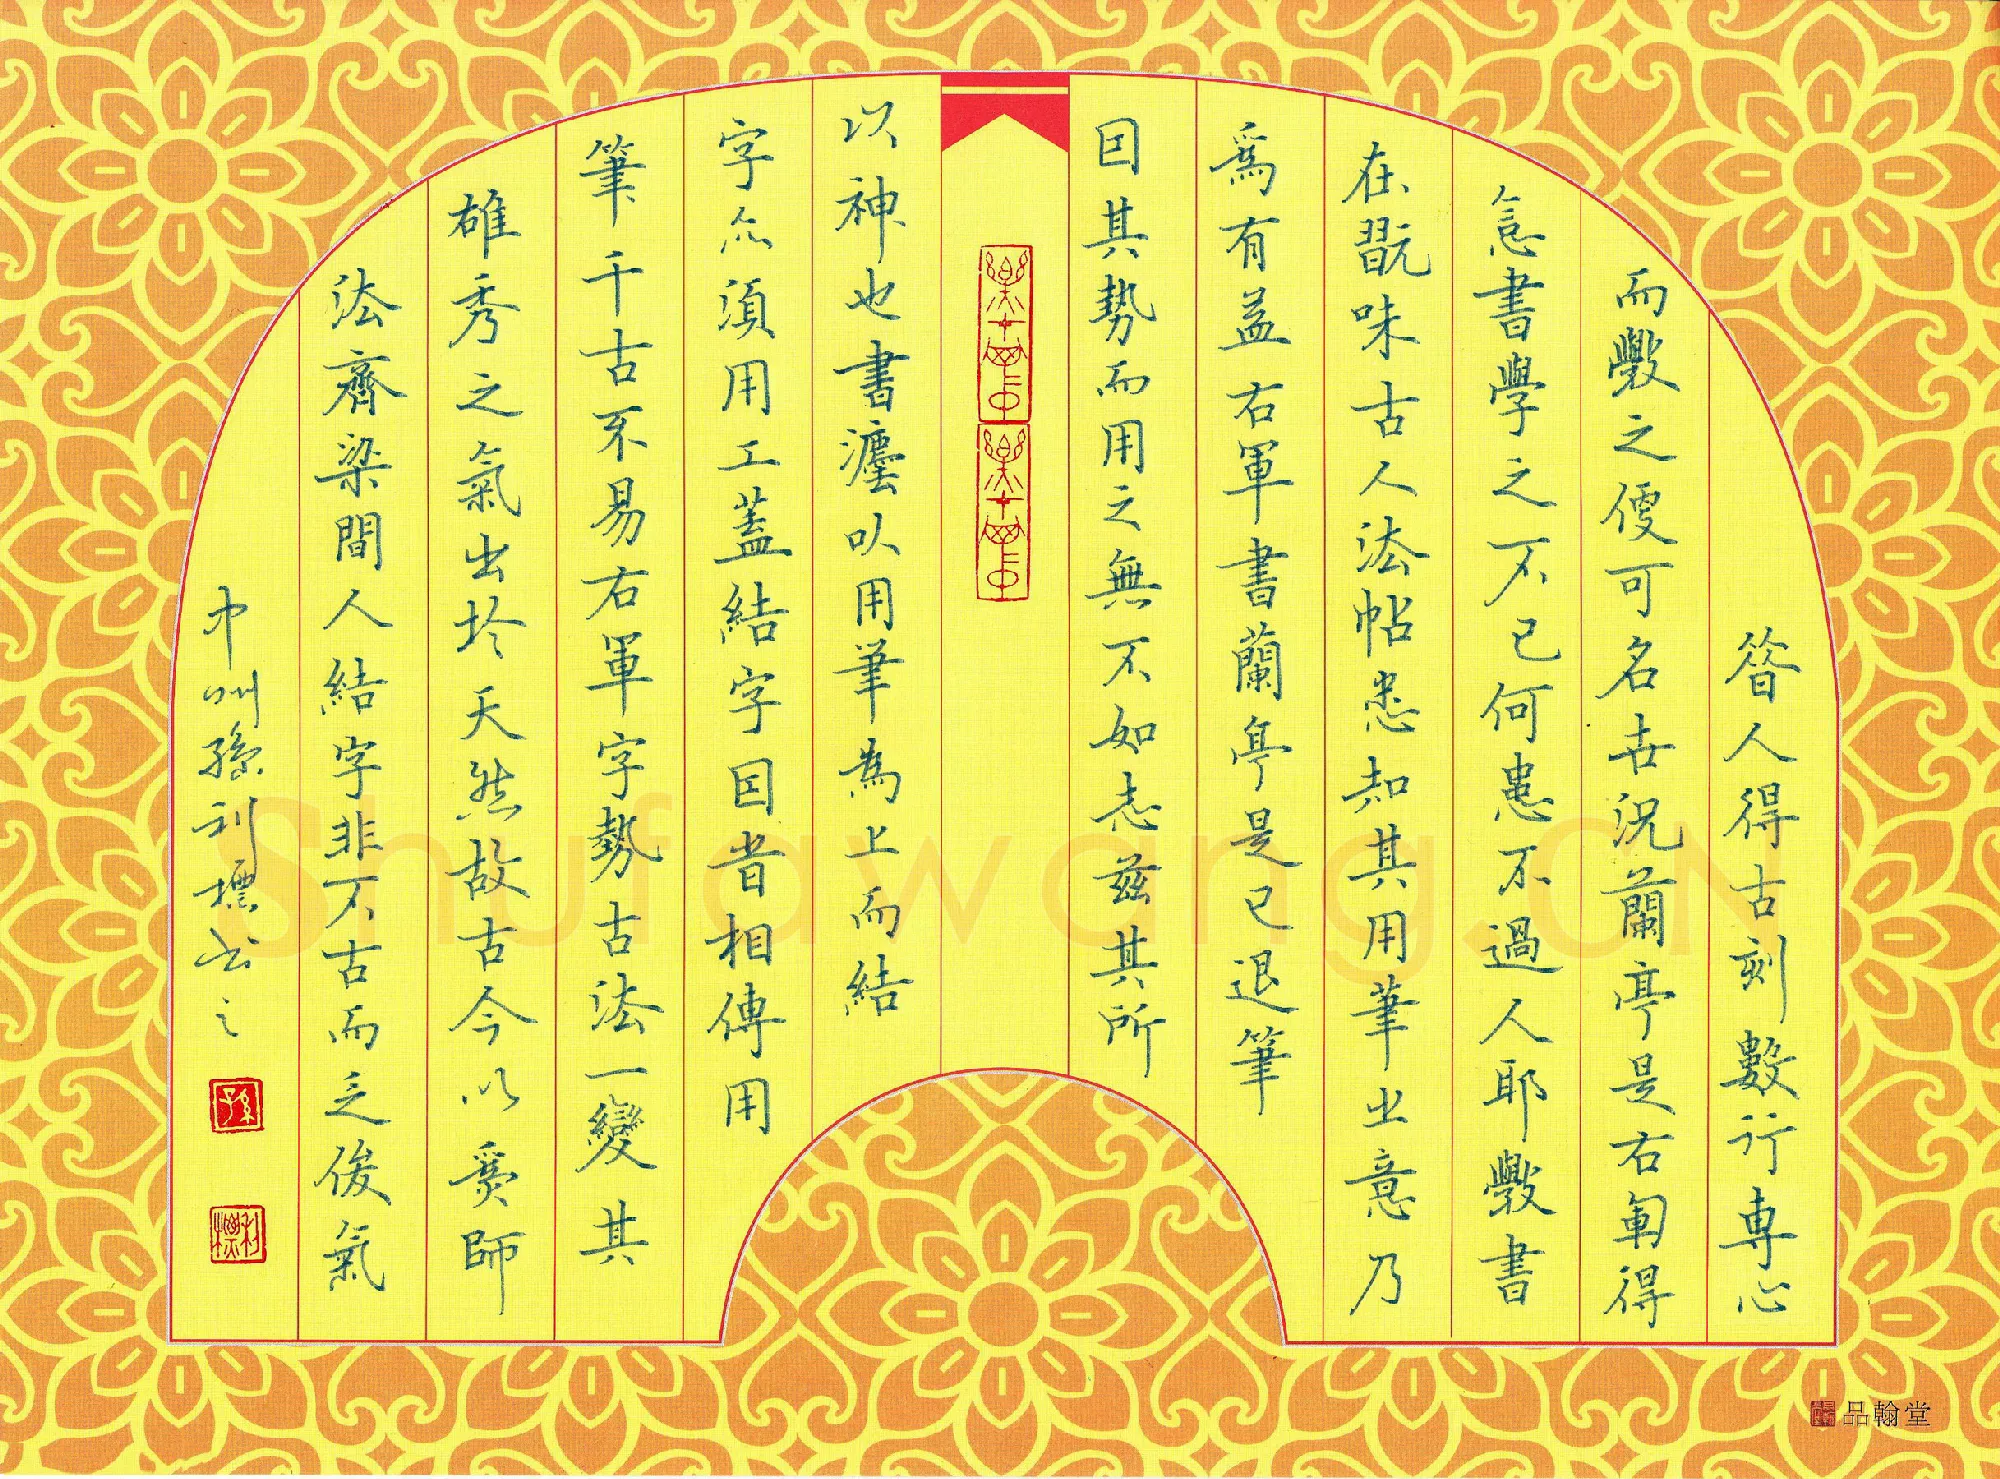 昝人得古刻數行專心
而斅之便可名世況蘭亭是右軍得
意書學之不已何患不過人耶斅書
在翫味古人法帖悉知其用筆之意乃
爲有益右軍書蘭亭是已退筆
因其勢而用之無不如志兹其所
以神也書灋以用筆為上而結
字亦須用工蓋結字因時相傳用
筆千古不易右軍字勢古法一變其
雄秀之氣出於天然故古今以爲師
法齊梁間人結字非不古而乏俊氣
中州孫利標书之
孫
利標
Shufawang.CN
品翰堂